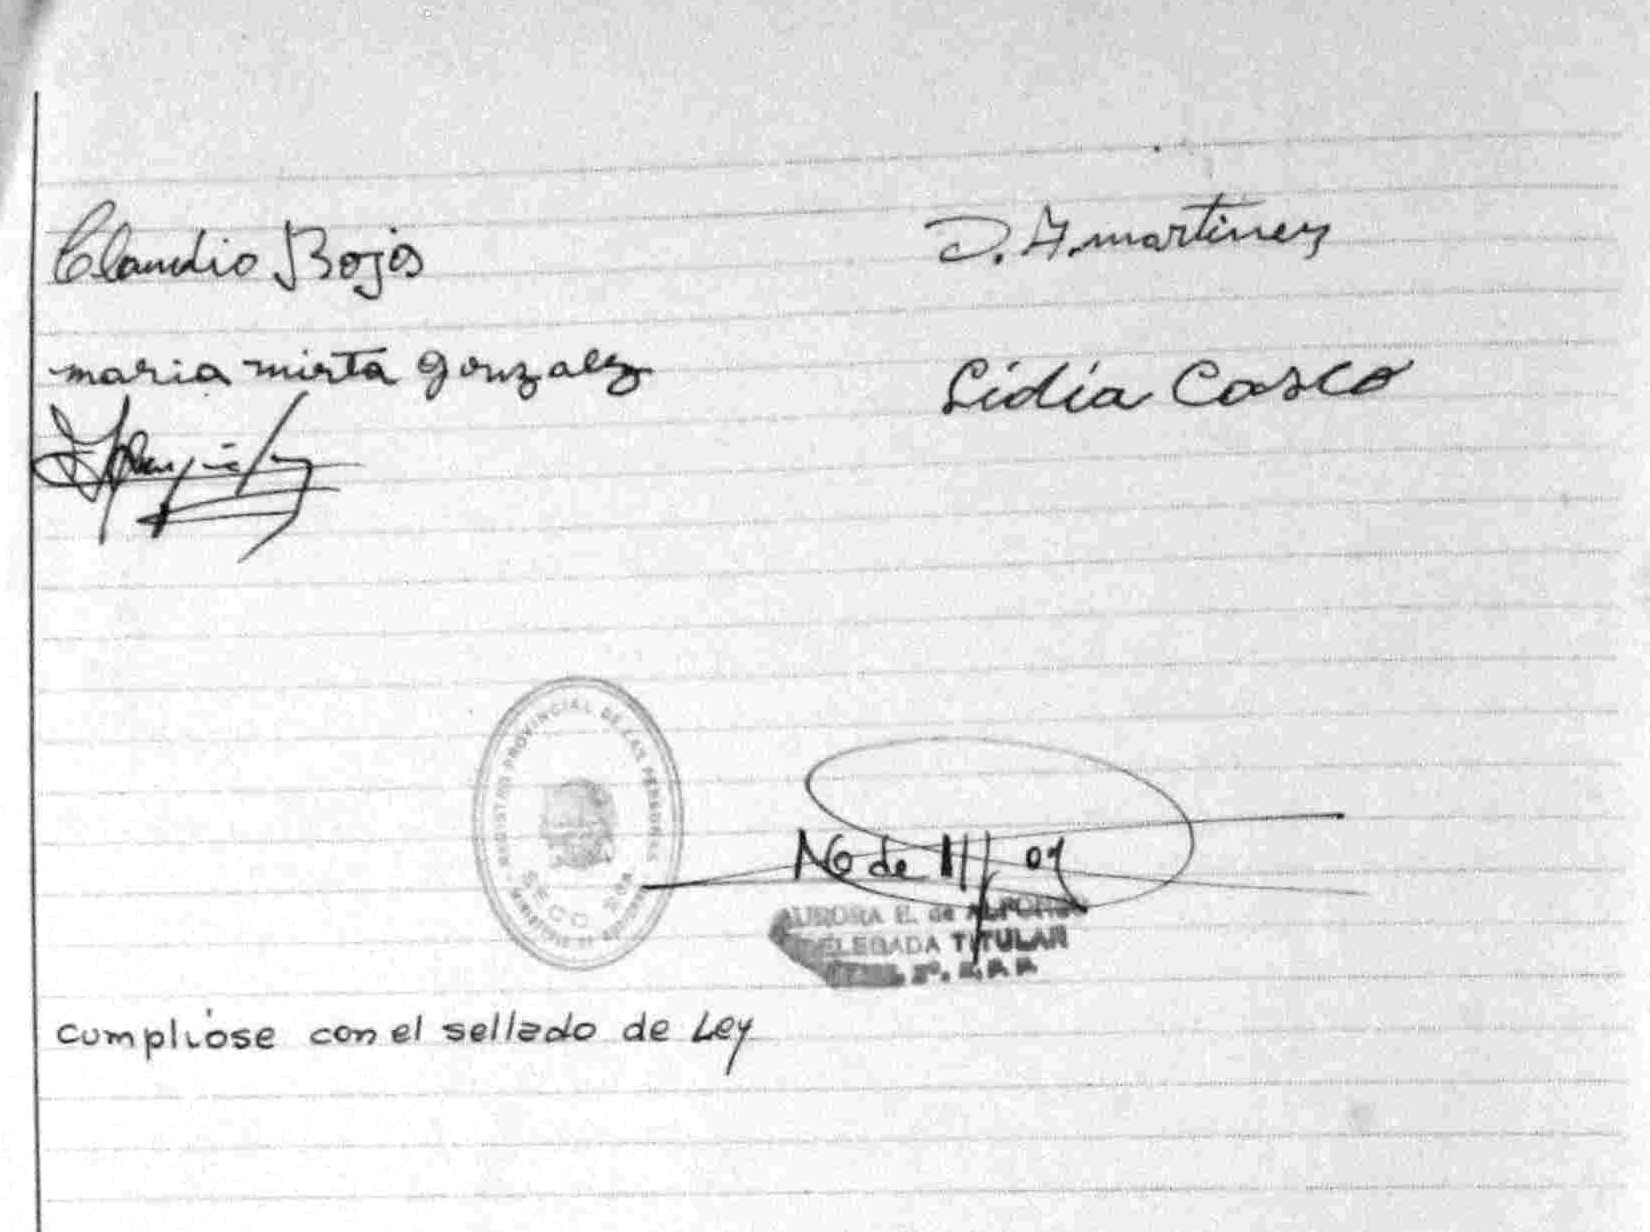 Claudio Rojas
D. A. martinez
maria mirta gonzalez
Lidia Casco
REGISTRO PROVINCIAL DE LAS PERSONAS
SECC
de
AURORA E. de ALFONSO
DELEGADA TITULAR
cumplióse con el sellado de Ley